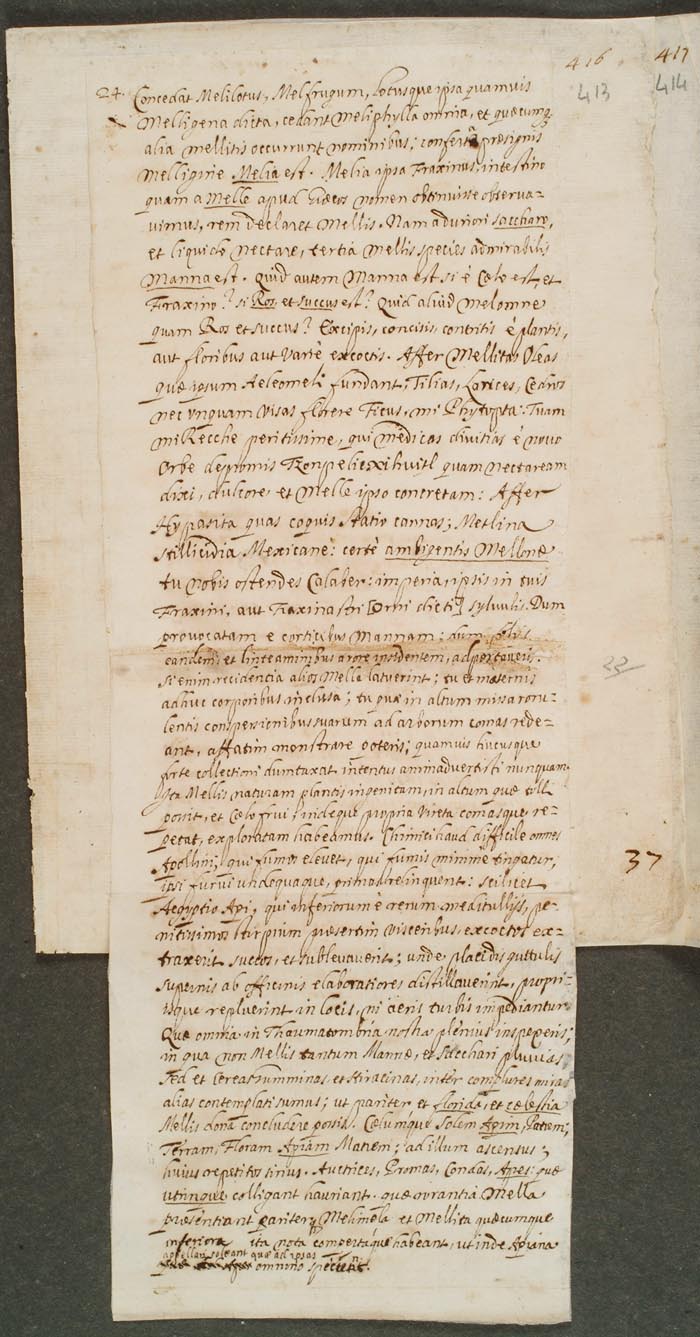 416 417
413 414
24. Concedat Melilotus, Melfrugum, Lotusque ipsa quamuis
Melligena dicta, cedant Meliphylla omnia, et quæcunq
alia mellitis occurrunt nominibus; præsignis
Melliginie Melia est. Melia ipsa Fraxinus, intestino
quam a Melle apud nomen obtinuisse observa-
uimus, rem declaret Mellis. Nam a duriori saccharo,
et liquido Nectare, tertia Mellis species admirabilis
Manna est. Quid autem Manna est si è Cœlo est, et
Fraxino? si Ros, et succus est? Quid aliud Mel omne
quam Ros et succus? Excipis, concisis, contritis è plantis,
aut floribus aut variè excoctis. Affer Mellitas Oleas
quæ ipsum Aeleomeli fundant, Tilias, Larices, Cedros
nec vnquam visas florere Ficus, mi Phytopta: Tuam
mi Recche peritissime, qui medicas diuitias è nouo
Orbe depromis quam nectaream
dixi, dulcore, et Melle ipso concretam: Affer
quas coquis statiu cannas; Metlina
stillicidia Mexicanè: certè ambigentis Mellone
tu nobis ostendes Calaber: imperia, ipsis in tuis
Fraxini, aut Fraxinastri [Orni dicti] syluulis. Dum
prouocatam e corticibus Mannam: dum
eandem, et linteaminibus arore insidentem,
Si enim recidencia alios Mella latuerint; tu et maternis
adhuc corporibus inclusa; tu quæ in altum missa roru-
lentis conspersionibus suarum ad arborum comas rede-
ant, affatim monstrare poteris; quamuis hucusque
forte collectioni dumtaxat intentus animaduertisti nunquam.
Ista Mellis naturam plantis ingenitam, in altum quæ toll
possit, et Cœlo frui, indeque propria vireta comasque re-
petat, exploratam habeamus. Chimici haud difficile omnes
Apollini, qui fumos eleuet, qui fumis minimè tingatur,
ipsi furui undequaque, primas relinquent: scilicet
Aegyptio Api, qui inferiorum è rerum meditullijs, pe-
nitissimos stirpium præsertim visceribus, excoctos ex-
traxerit succos, et sublevauerit; unde placidis guttulis
supernis ab officinis elaboratiores distillauerint, propri-
isque repluerint in locis, ni aeris turbis impediantur
Quæ omnia in Thaumatombria nostra plenius inspexeris;
in qua non Mellis tantum Mannæ, et Sacchari pluuias,
sed et Cereas summinas, et stiracinas, inter complures miras
alias contemplati sumus; ut pariter et florida, et cœlestia
Mellis dona concludere possis. Cœlumque Solem Apim, Patrem;
Terram, Floram Apiam Matrem; ad illum ascensus;
huius repetitos Auctrices, Promas, Condas, Apes: quæ
utrinque colligant hauriant. quæ Mella
præsentiant pariter, Melimela et Mellita quæcumque
inferiora ita nota compertaque habeant, ut inde Apiana
appellari soleant quæ ad ipsas
omnino
37